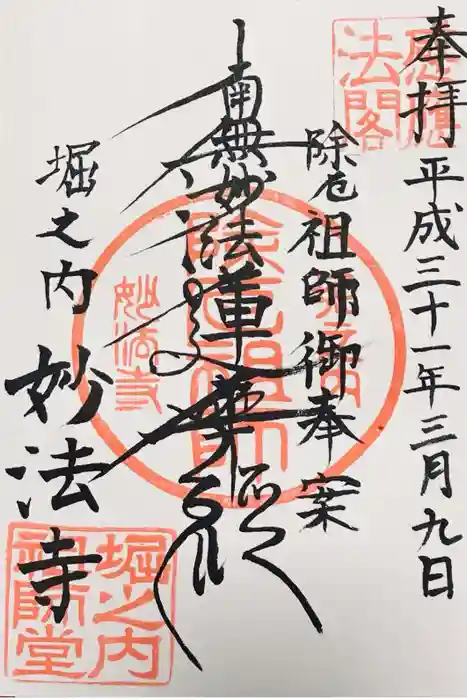 奉拝
平成三十一年三月九日
除厄祖師御奉安
南無妙法蓮華経
堀之内
妙法寺
除厄祖師
妙法寺
堀之内
祖師堂